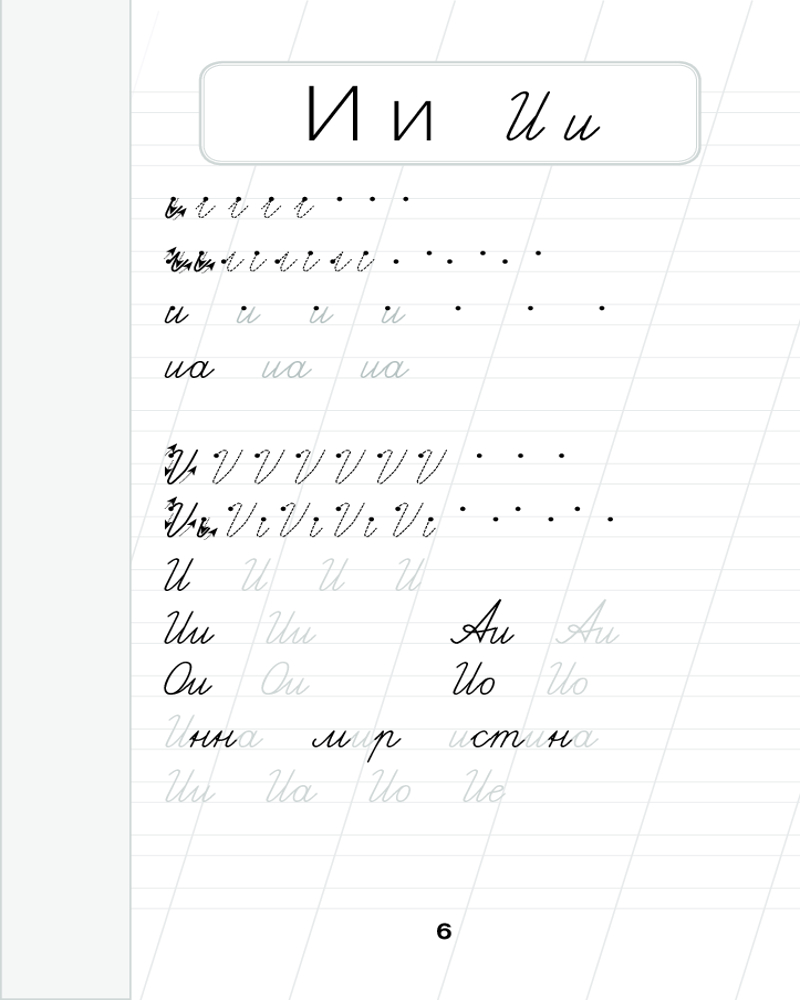 И и И и
и и и и
иа иа иа
И И И И
Ии Ии Аи Аи
Ои Ои Ио Ио
Инна мир истина
Ии Иа Ио Ие
6